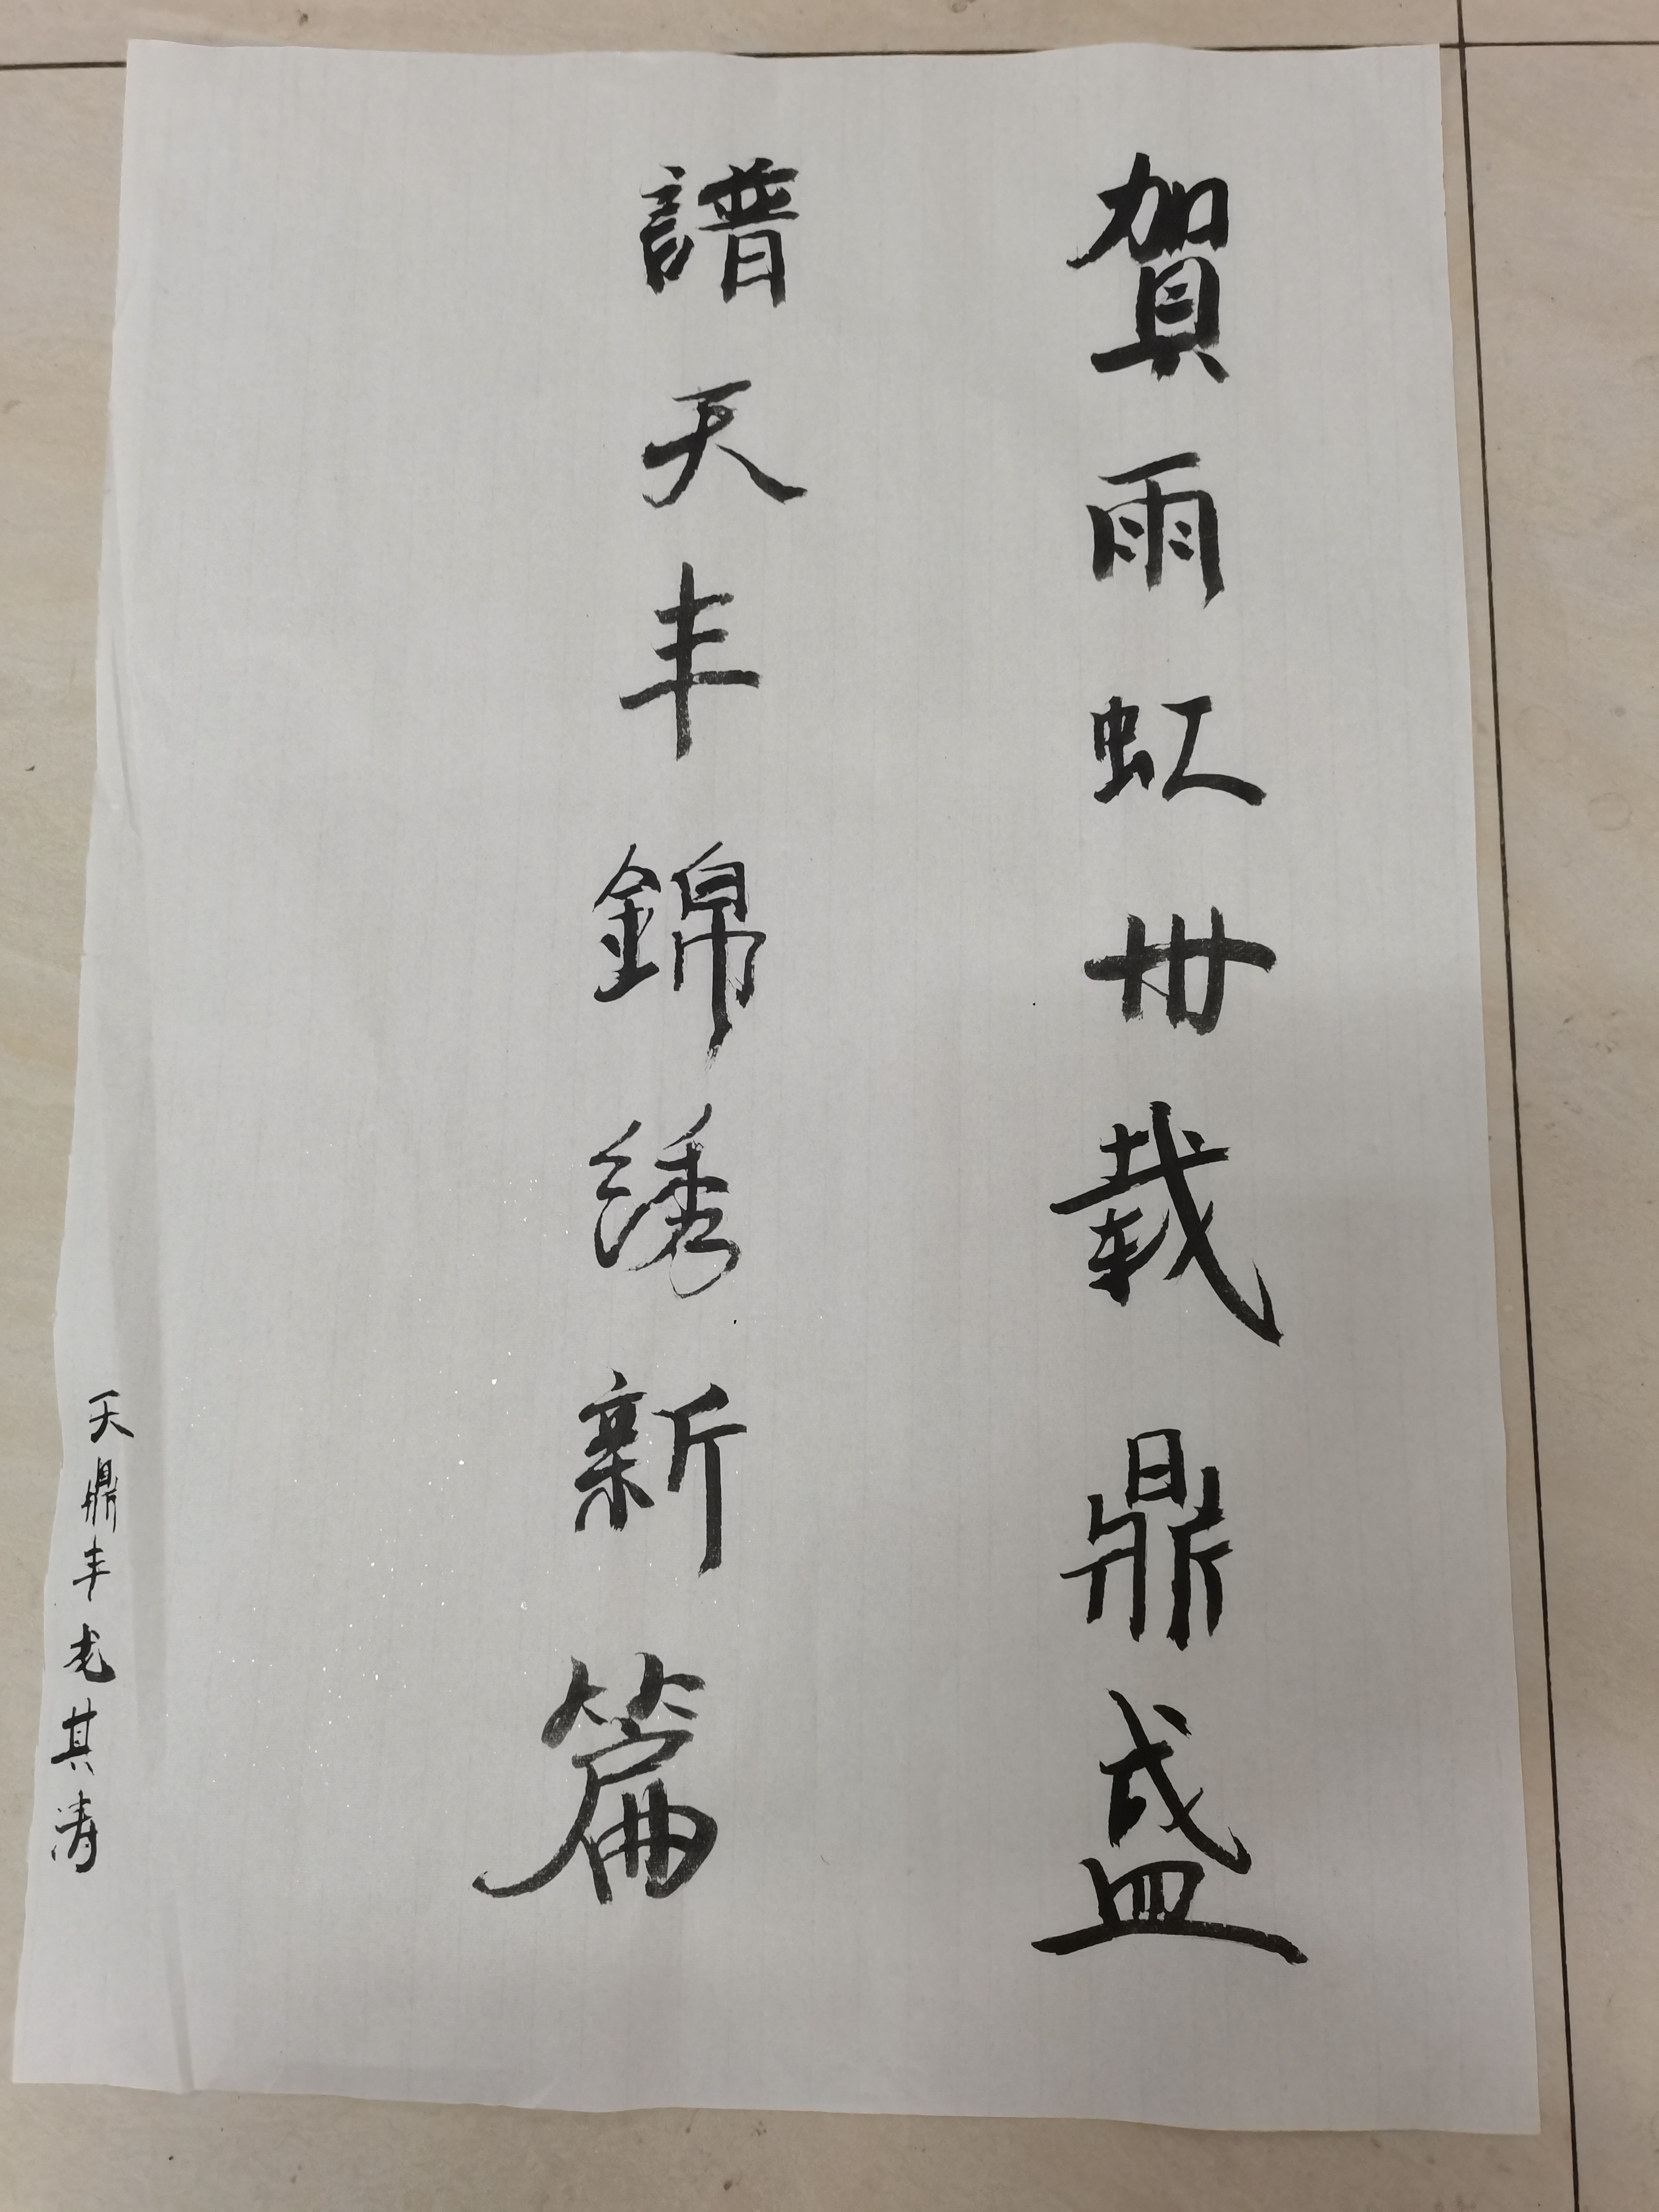 賀雨虹卅载鼎盛
譜天丰錦绣新篇
天鼎丰尤其涛